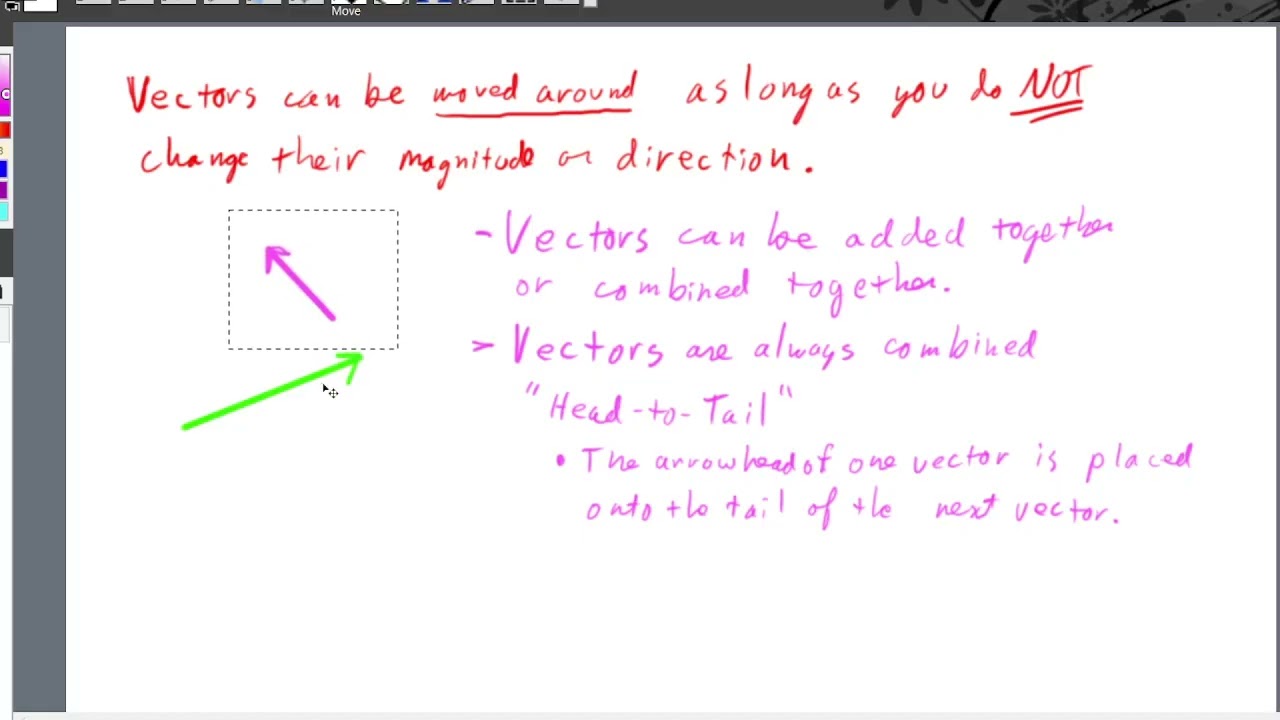 Move
Vectors can be moved around as long as you do NOT
change their magnitude or direction.
- Vectors can be added together
or combined together.
> Vectors are always combined
"Head-to-Tail"
• The arrowhead of one vector is placed
onto the tail of the next vector.